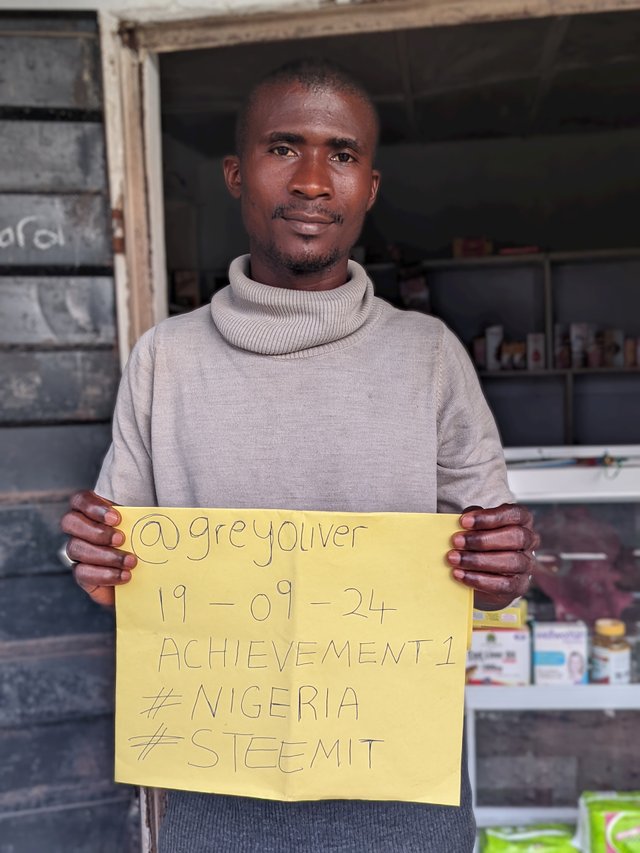 oroi
@greyOliver
19 - 09 - 24
ACHIEVEMENT 1
#NIGERIA
#STEEMIT